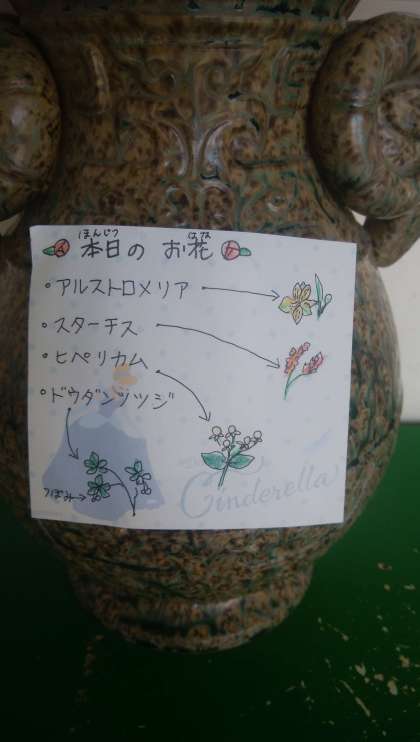 ほんじつ はな
本日の お花
・アルストロメリア
・スターチス
・ヒペリカム
・ドウダンツツジ
つぼみ→
Cinderella